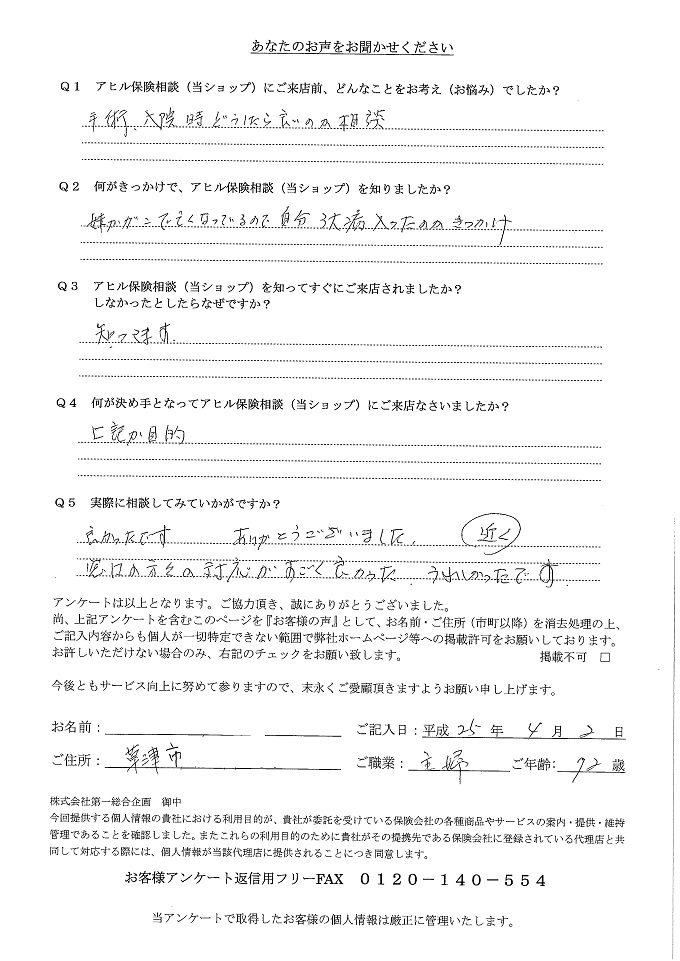 あなたのお声をお聞かせください
Q1 アヒル保険相談（当ショップ）にご来店前、どんなことをお考え（お悩み）でしたか？
手術、入院時どうしたら良いのか相談
Q2 何がきっかけで、アヒル保険相談（当ショップ）を知りましたか？
がガンで亡くなっているので自分 入ったのがきっかけ
Q3 アヒル保険相談（当ショップ）を知ってすぐにご来店されましたか？
しなかったとしたらなぜですか？
知ってます。
Q4 何が決め手となってアヒル保険相談（当ショップ）にご来店なさいましたか？
上記が目的
Q5 実際に相談してみていかがですか？
良かったです ありがとうございました。 近く
窓口の方々の対応がすごく良かった。うれしかったです。
アンケートは以上となります。ご協力頂き、誠にありがとうございました。
尚、上記アンケートを含むこのページを『お客様の声』として、お名前・ご住所（市町以降）を消去処理の上、
ご記入内容からも個人が一切特定できない範囲で弊社ホームページ等への掲載許可をお願いしております。
お許しいただけない場合のみ、右記のチェックをお願い致します。 掲載不可 □
今後ともサービス向上に努めて参りますので、末永くご愛顧頂きますようお願い申し上げます。
お名前： ご記入日：平成 25 年 4 月 2 日
ご住所： 草津市 ご職業： 主婦 ご年齢： 72 歳
株式会社第一総合企画 御中
今回提供する個人情報の貴社における利用目的が、貴社が委託を受けている保険会社の各種商品やサービスの案内・提供・維持
管理であることを確認しました。またこれらの利用目的のために貴社がその提携先である保険会社に登録されている代理店と共
同して対応する際には、個人情報が当該代理店に提供されることにつき同意します。
お客様アンケート返信用フリーFAX 0120－140－554
当アンケートで取得したお客様の個人情報は厳正に管理いたします。